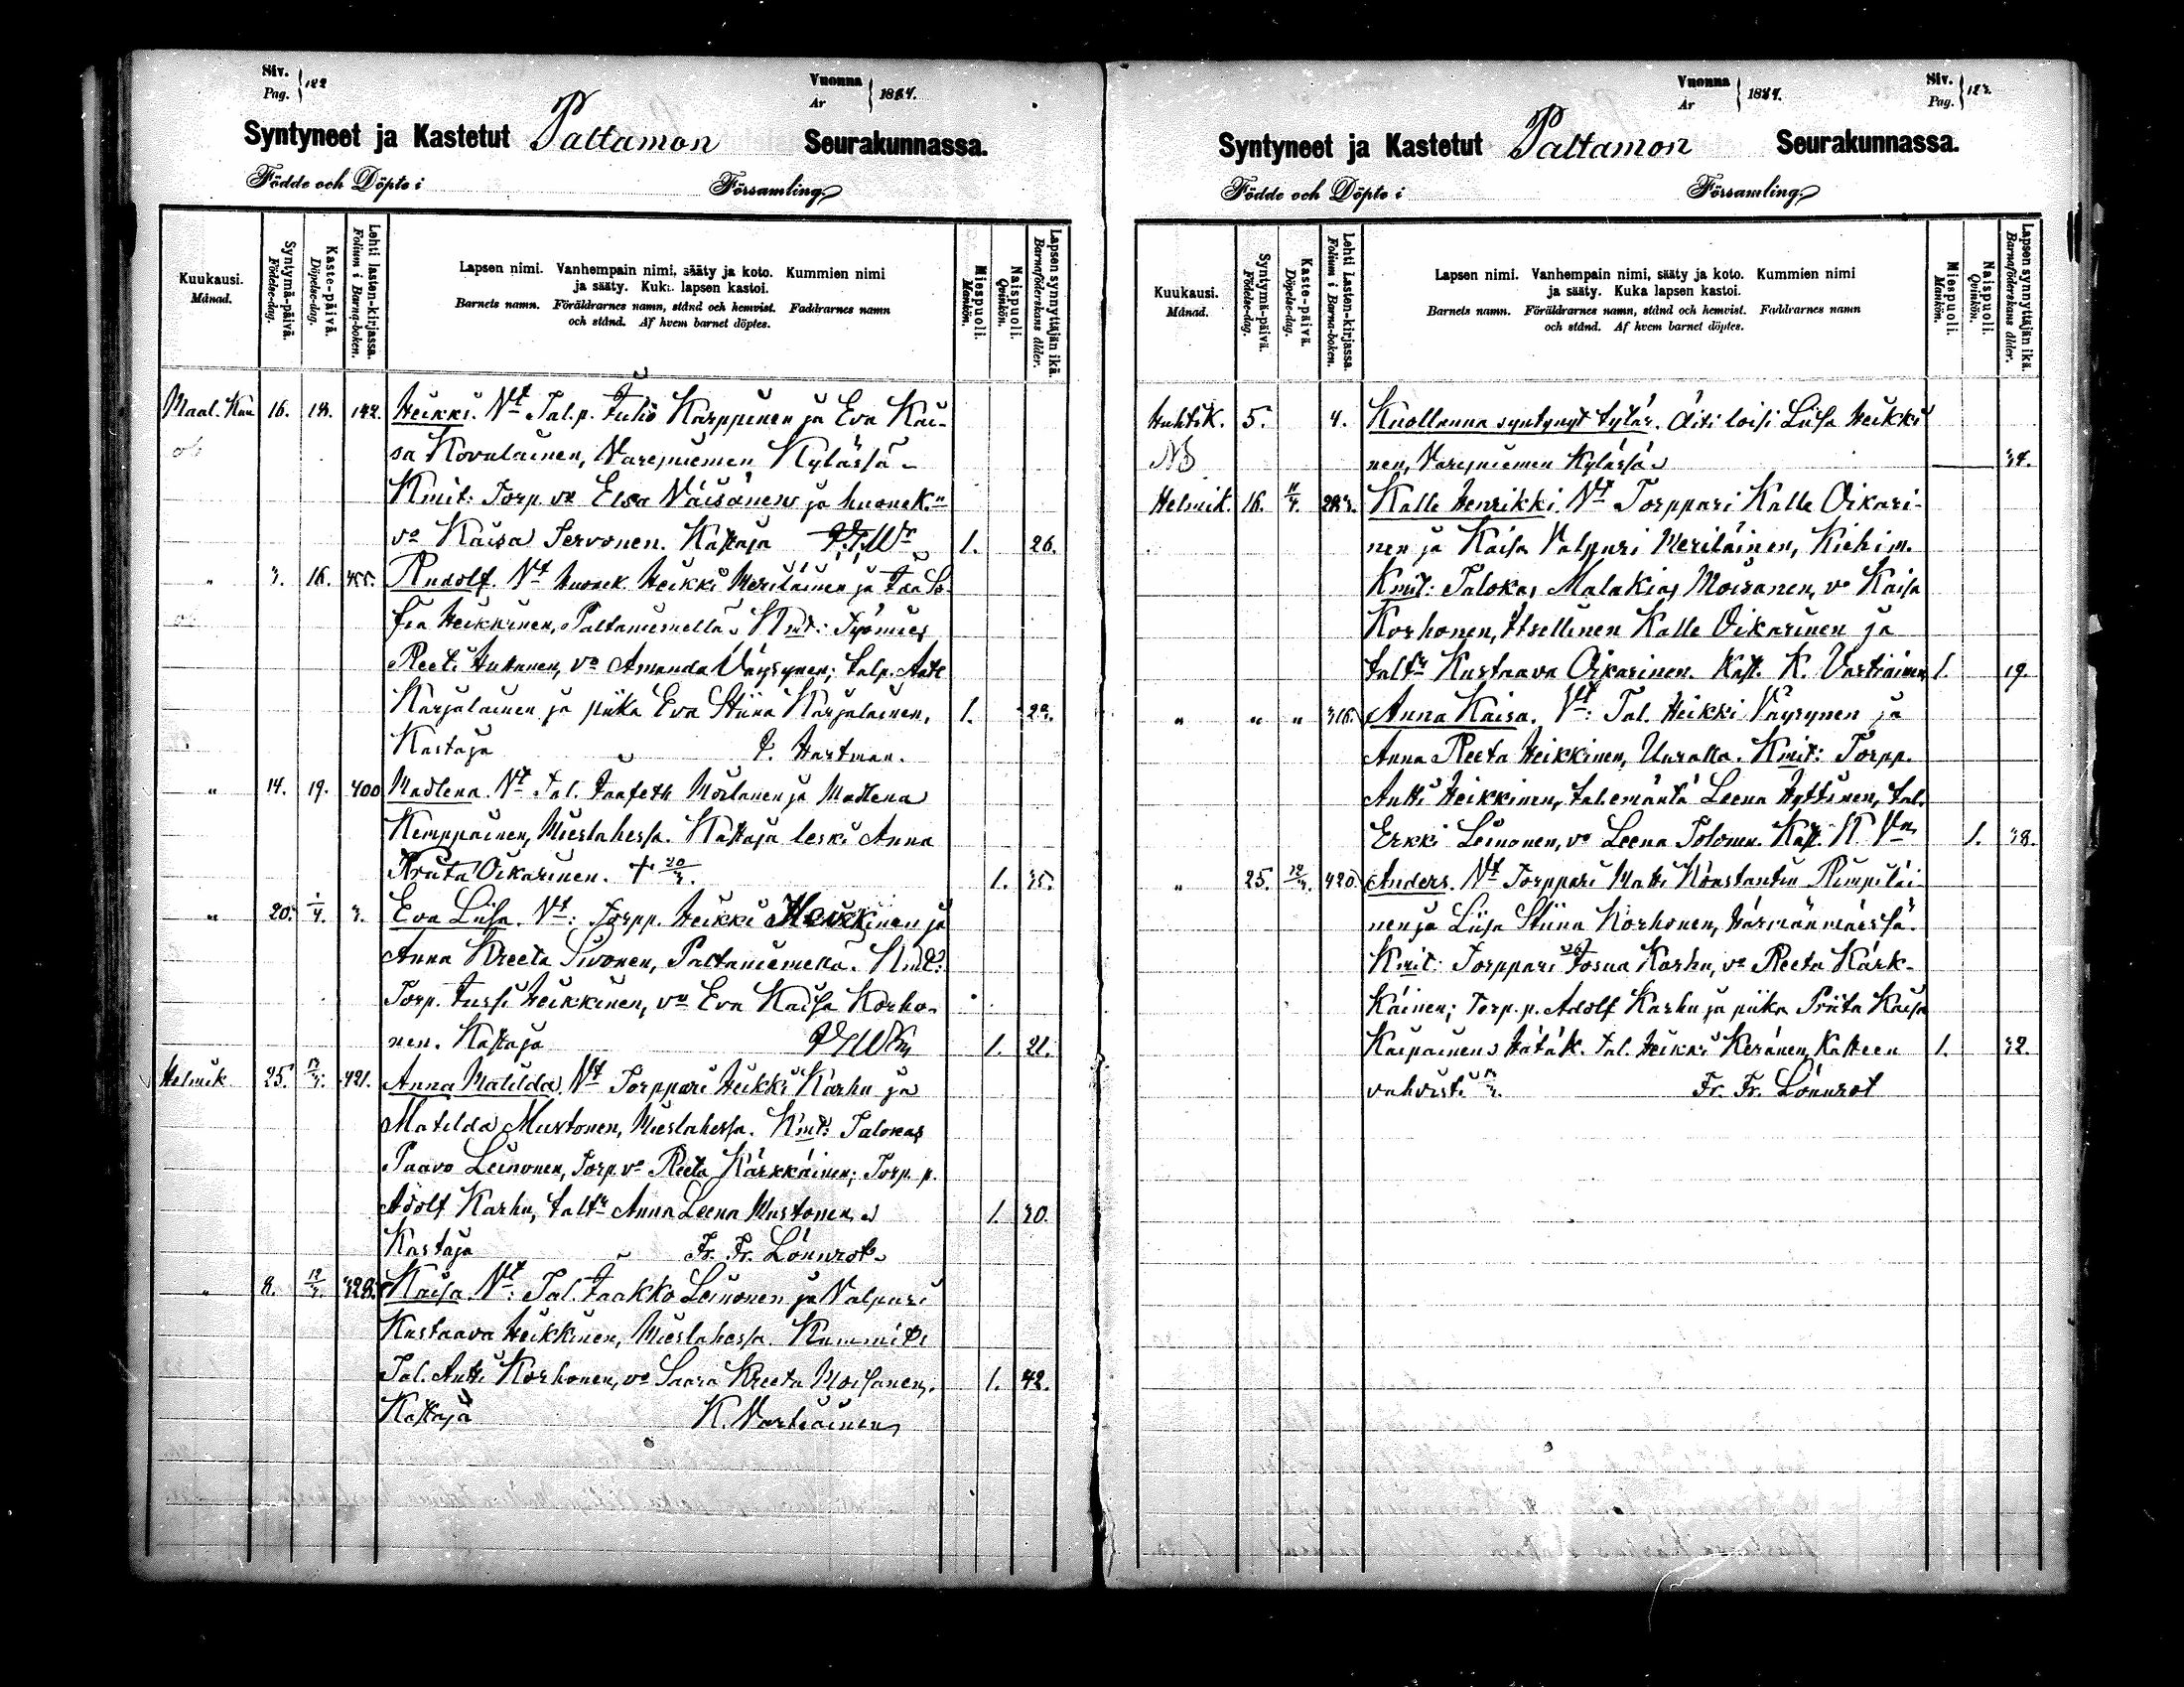 Siv.
Pag. 182
Vuonna
År 1884.
Syntyneet ja Kastetut Paltamon Seurakunnassa.
Födde och Döpte i Församling.
Kuukausi.
Månad.
Syntymä-päivä.
Födelse-dag.
Kaste-päivä.
Döpelse-dag.
Lehti lasten-kirjassa.
Folium i Barna-boken.
Lapsen nimi. Vanhempain nimi, sääty ja koto. Kummien nimi
ja sääty. Kuka lapsen kastoi.
Barnets namn. Föräldrarnes namn, stånd och hemvist. Faddrarnes namn
och stånd. Af hvem barnet döptes.
Miespuoli.
Mankön.
Naispuoli.
Qvinkön.
Lapsen synnyttäjän ikä.
Barnaföderskans ålder.
Maal. Kuu 16. 18. 142. Heikki. Vt Tal.p. Julio Karppinen ja Eva Kai-
sa Kovalainen, Varejniemen Kylässä
Kmit: Torp. va Elsa Väisänen ja huonek.
va Kaisa Servonen. Kastaja 1. 26.
" 3. 16. 455. Rudolf. Vt huonek Heikki Meriläinen ja So-
fia Heikkinen, Paltaniemellä. Kmt: Työmies
Reeti Hukanen, va Amanda Väyrynen; talp. Antti
Karjalainen ja piika Eva Stiina Karjalainen. 1.
Kastaja Hartman.
" 14. 19. 400 Madlena. Vt Tal. Jaafeth Moilanen ja Madlena
Kemppainen, Mieslahessa. Kastaja leski Anna
Oikarinen. + 20/3. 1. 35.
" 20. 1/4. 3. Eva Liisa. Vt: Torpp. Heikki Heikkinen ja
Anna Kreeta Sivonen, Paltaniemellä. Kmt:
Torp. Jussi Heikkinen, va Eva Kaisa Korho-
nen. Kastaja 1. 21.
Helmik. 25. 421. Anna Matilda. Vt Torppari Heikki Karhu ja
Matilda Mustonen, Mieslahessa. Kmt: Talokas
Paavo Leinonen, Torp. va Reeta Kärkkäinen; Torp. p.
Adolf Karhu, taltr Anna Leena Mustonen. 1. 30.
Kastaja Fr. Fr. Lönnrot.
" 8. 12/3. 328. Kaisa. Vt: Tal. Jaakko Leinonen ja Valpuri
Kustaava Heikkinen, Mieslahessa. Kummit:
Tal. Antti Korhonen, va Saara Kreeta Moisanen. 1. 42.
Kastaja K. Vartiainen
Vuonna
År 1884.
Siv.
Pag. 183.
Syntyneet ja Kastetut Paltamon Seurakunnassa.
Födde och Döpte i Församling.
Kuukausi.
Månad.
Syntymä-päivä.
Födelse-dag.
Kaste-päivä.
Döpelse-dag.
Lehti Lasten-kirjassa.
Folium i Barna-boken.
Lapsen nimi. Vanhempain nimi, sääty ja koto. Kummien nimi
ja sääty. Kuka lapsen kastoi.
Barnets namn. Föräldrarnes namn, stånd och hemvist. Faddrarnes namn
och stånd. Af hvem barnet döptes.
Miespuoli.
Mankön.
Naispuoli.
Qvinkön.
Lapsen synnyttäjän ikä.
Barnaföderskans ålder.
Huhtik. 5. 4. Kuollunna syntynyt tytär. Äiti loisi Liisa Heikki
NB nen, Varejniemen Kylässä 34.
Helmik. 16. 11/4. 283. Kalle Henrikki. Vt Torppari Kalle Oikari-
nen ja Kaisa Valpuri Meriläinen, Kiehim.
Kmit: Talokas Malakias Moisanen, va Kaisa
Korhonen, Itsellinen Kalle Oikarinen ja
taltr Kustaava Oikarinen. Kast. K. Vartiainen 1. 19.
" " " 316. Anna Kaisa. Vt: Tal. Heikki Väyrynen ja
Anna Reeta Heikkinen, Uuralla. Kmit: Torpp.
Antti Heikkinen, talemäntä Leena Hyttinen, tal.
Erkki Leinonen, va Leena Tolonen. Kast. K. Vn 1. 38.
" 25. 420. Anders. Vt Torppari Matti Konstantin Rimpiläi-
nen ja Liisa Stiina Korhonen, Härmänmäessä.
Kmit: Torppari Josua Karhu, va Reeta Kärk-
käinen; Torp. p. Adolf Karhu ja piika Priita Kaisa
Kaipainen. Hätäk. tal. Heikki Keränen, Kasteen 1. 32.
vahvisti Fr. Fr. Lönnrot